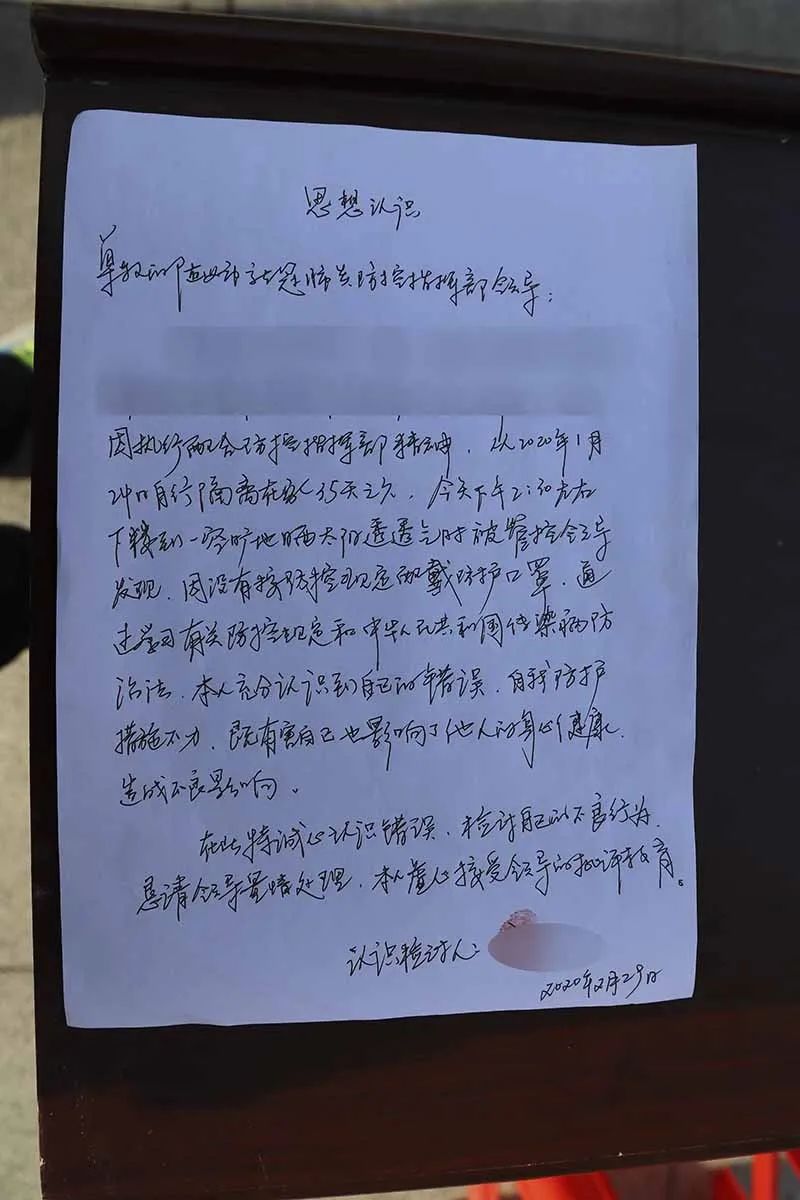 思想认识
尊敬的 新冠肺炎防控指挥部领导：
因执行配合防控指挥部精神，从2020年1月
24日自行隔离在家35天之久，今天下午2:30左右
下楼到一空旷地晒太阳透透气时被管控领导
发现，因没有按防控规定配戴防护口罩，通
过学习有关防控规定和中华人民共和国传染病防
治法，本人充分认识到自己的错误，自我防护
措施不力，既有害自己也影响了他人的身心健康，
造成不良影响。
在此特诚心认识错误，检讨自己的不良行为，
恳请领导量情处理，本人虚心接受领导的批评教育。
认识检讨人：
2020年2月29日